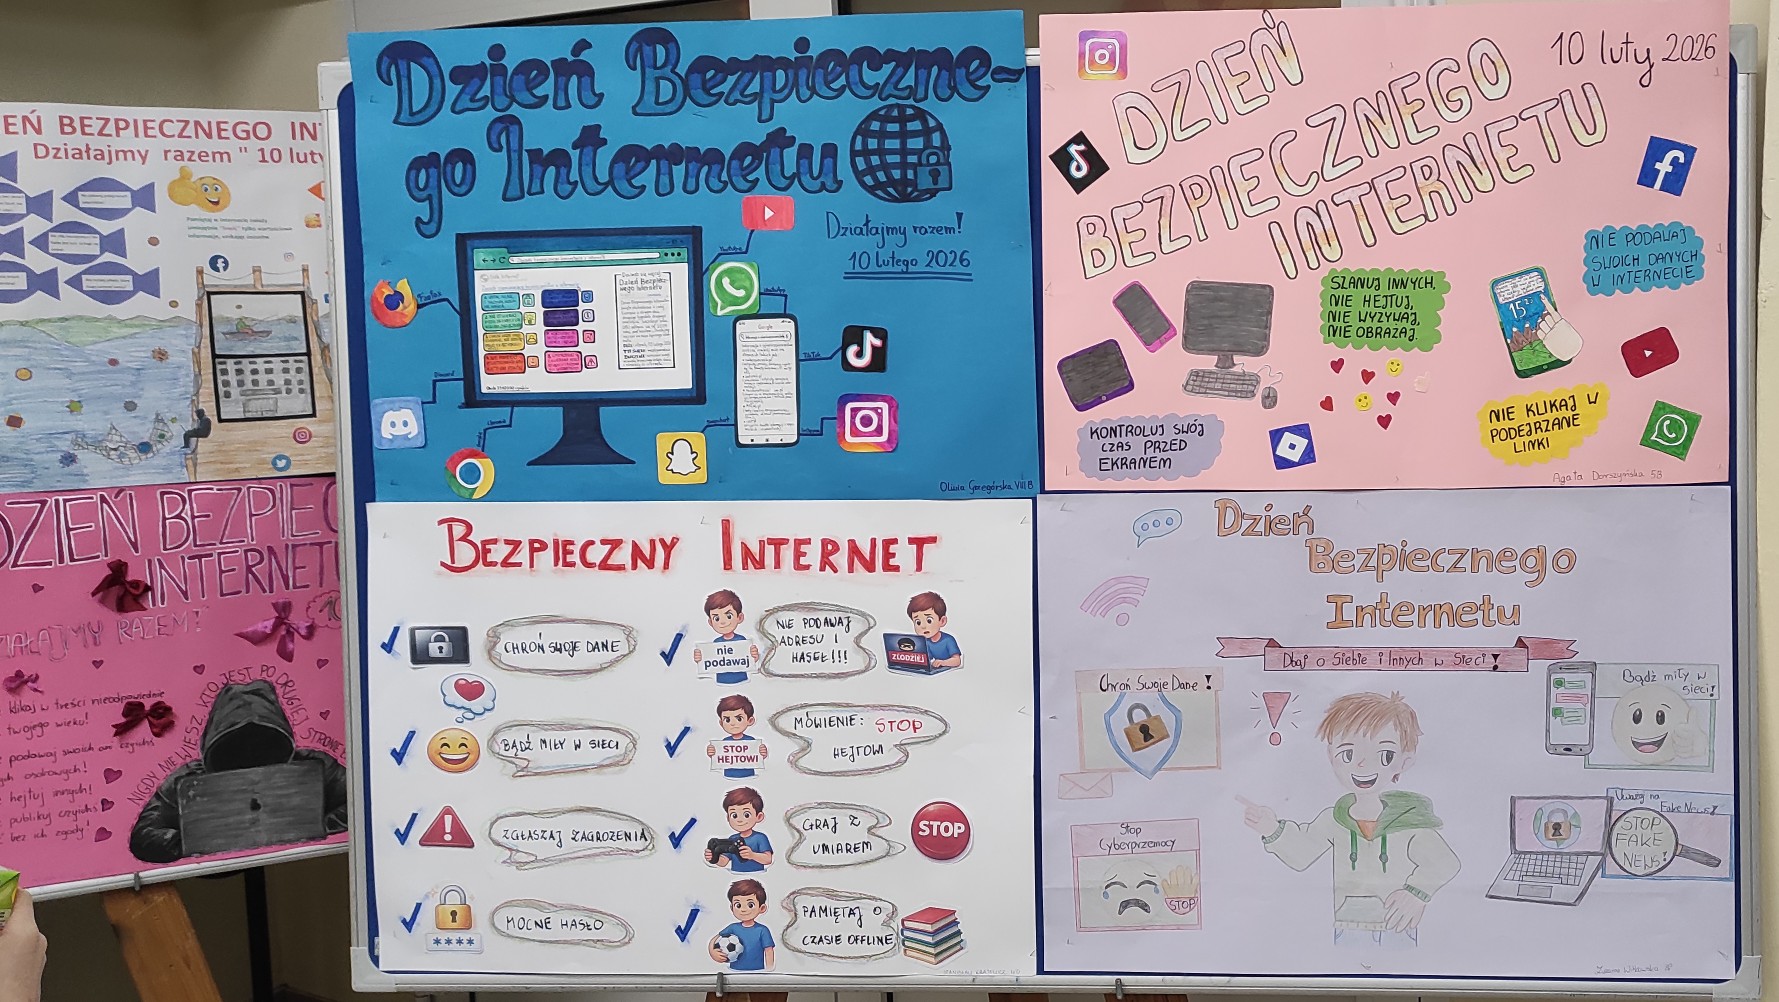 EŃ BEZPIECZNEGO IN
Działajmy razem" 10 luty
DZIEŃ BEZPIEC
INTERNET
ZIAŁAJMY RAZEM!
klikaj w treści nieodpowiednie
twojego wieku!
hejtuj innych!
bez ich zgody!
NIGDY NIE WIESZ, KTO JEST PO DRUGIEJ STRONIE
Dzień Bezpieczne-
go Internetu
Działajmy razem!
10 lutego 2026
YouTube
WhatsApp
TikTok
Discord
Google
Oliwia Grzegórska VIII B
10 luty 2026
DZIEŃ
BEZPIECZNEGO
INTERNETU
NIE PODAWAJ
SWOICH DANYCH
W INTERNECIE
SZANUJ INNYCH,
NIE HEJTUJ,
NIE WYZYWAJ,
NIE OBRAŻAJ.
NIE KLIKAJ W
PODEJRZANE
LINKI
KONTROLUJ SWÓJ
CZAS PRZED
EKRANEM
Agata Dorszyńska 5B
BEZPIECZNY INTERNET
CHROŃ SWOJE DANE
nie
podawaj
NIE PODAWAJ
ADRESU I
HASEŁ!!!
ZŁODZIEJ
BĄDŹ MIŁY W SIECI
STOP
HEJTOWI
MÓWIENIE: STOP
HEJTOWI
ZGŁASZAJ ZAGROŻENIA
GRAJ Z
UMIAREM
STOP
MOCNE HASŁO
****
PAMIĘTAJ O
CZASIE OFFLINE
Dzień
Bezpiecznego
Internetu
Dbaj o Siebie i Innych w Sieci!
Chroń Swoje Dane!
Bądź miły w
sieci!
Stop
Cyberprzemocy
STOP
Uważaj na
Fake News!
STOP
FAKE
NEWS!